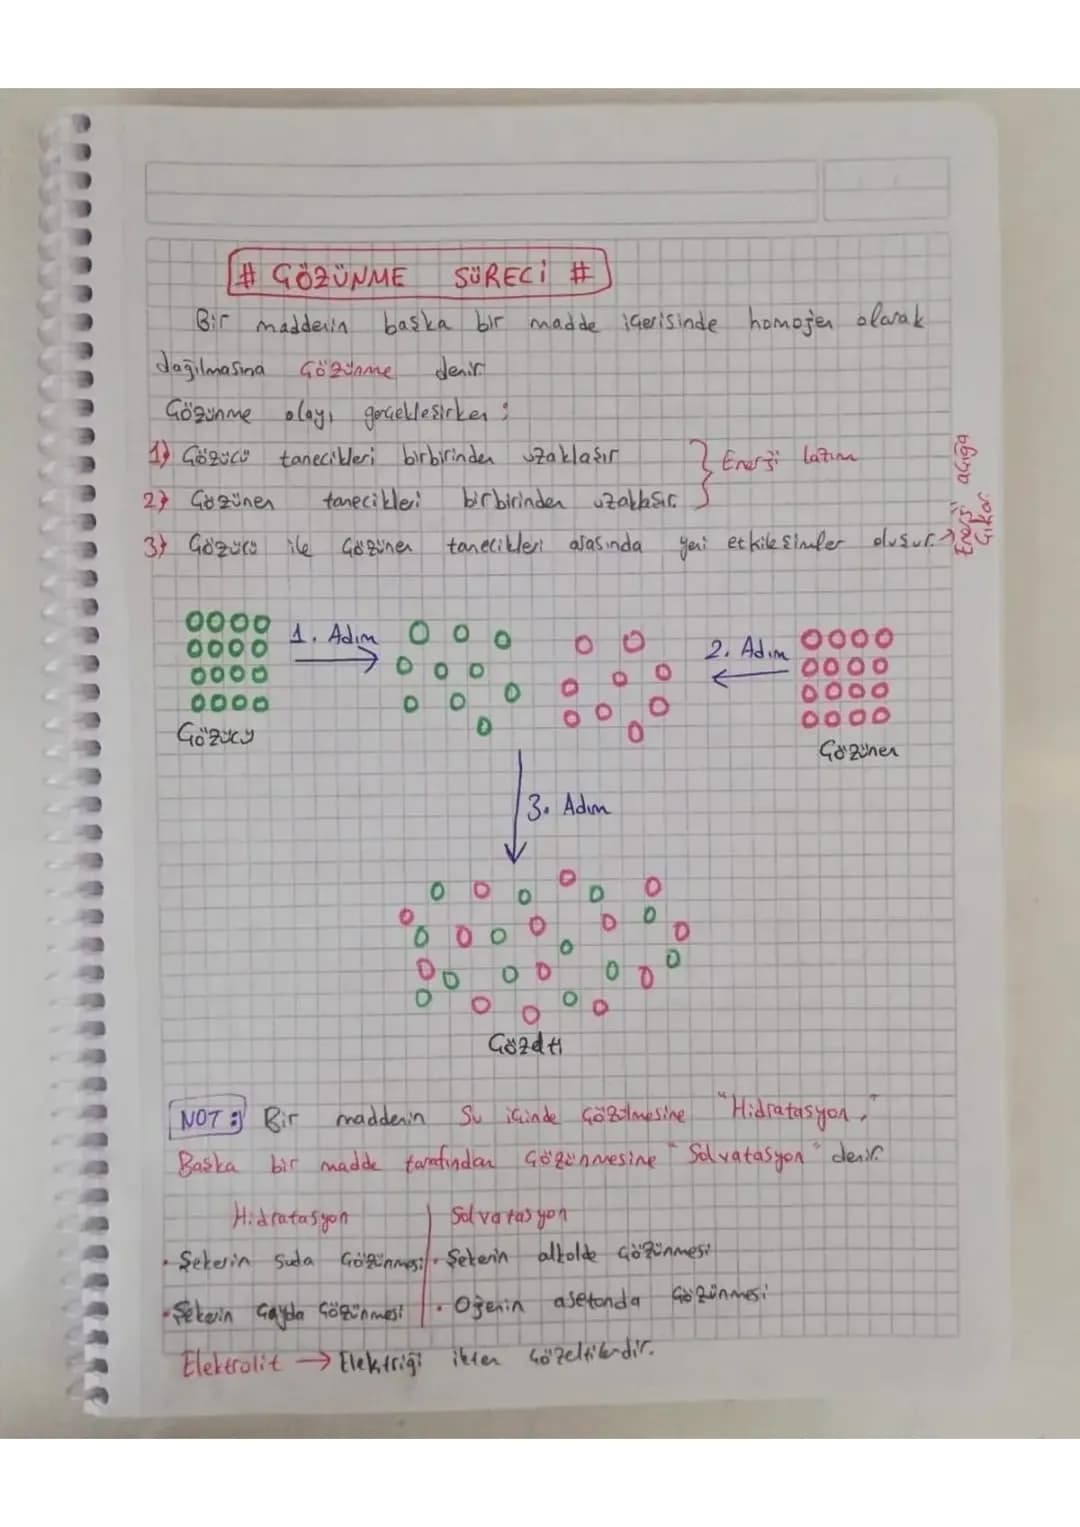 # ÇÖZÜNME SÜRECİ #
Bir maddenin başka bir madde içerisinde homojen olarak
dağılmasına Çözünme denir
Çözünme olayı gerçekleşirken :
1) Çözücü tanecikleri birbirinden uzaklaşır
2) Çözünen tanecikleri birbirinden uzaklaşır.
} Enerji lazım
3) Çözücü ile Çözünen tanecikleri arasında yeni etkileşimler oluşur. →
Enerji açığa
Çıkar.
1. Adım
2. Adım
Çözücü
Çözünen
3. Adım
Çözelti
NOT : Bir maddenin Su içinde Çözülmesine "Hidratasyon,"
Başka bir madde tarafından Çözünmesine "Solvatasyon" denir.
Hidratasyon Solvatasyon
• Şekerin Suda Çözünmesi • Şekerin alkolde Çözünmesi
• Şekerin Çayda Çözünmesi • Ojenin asetonda Çözünmesi
Elektrolit → Elektriği ileten Çözeltilerdir.